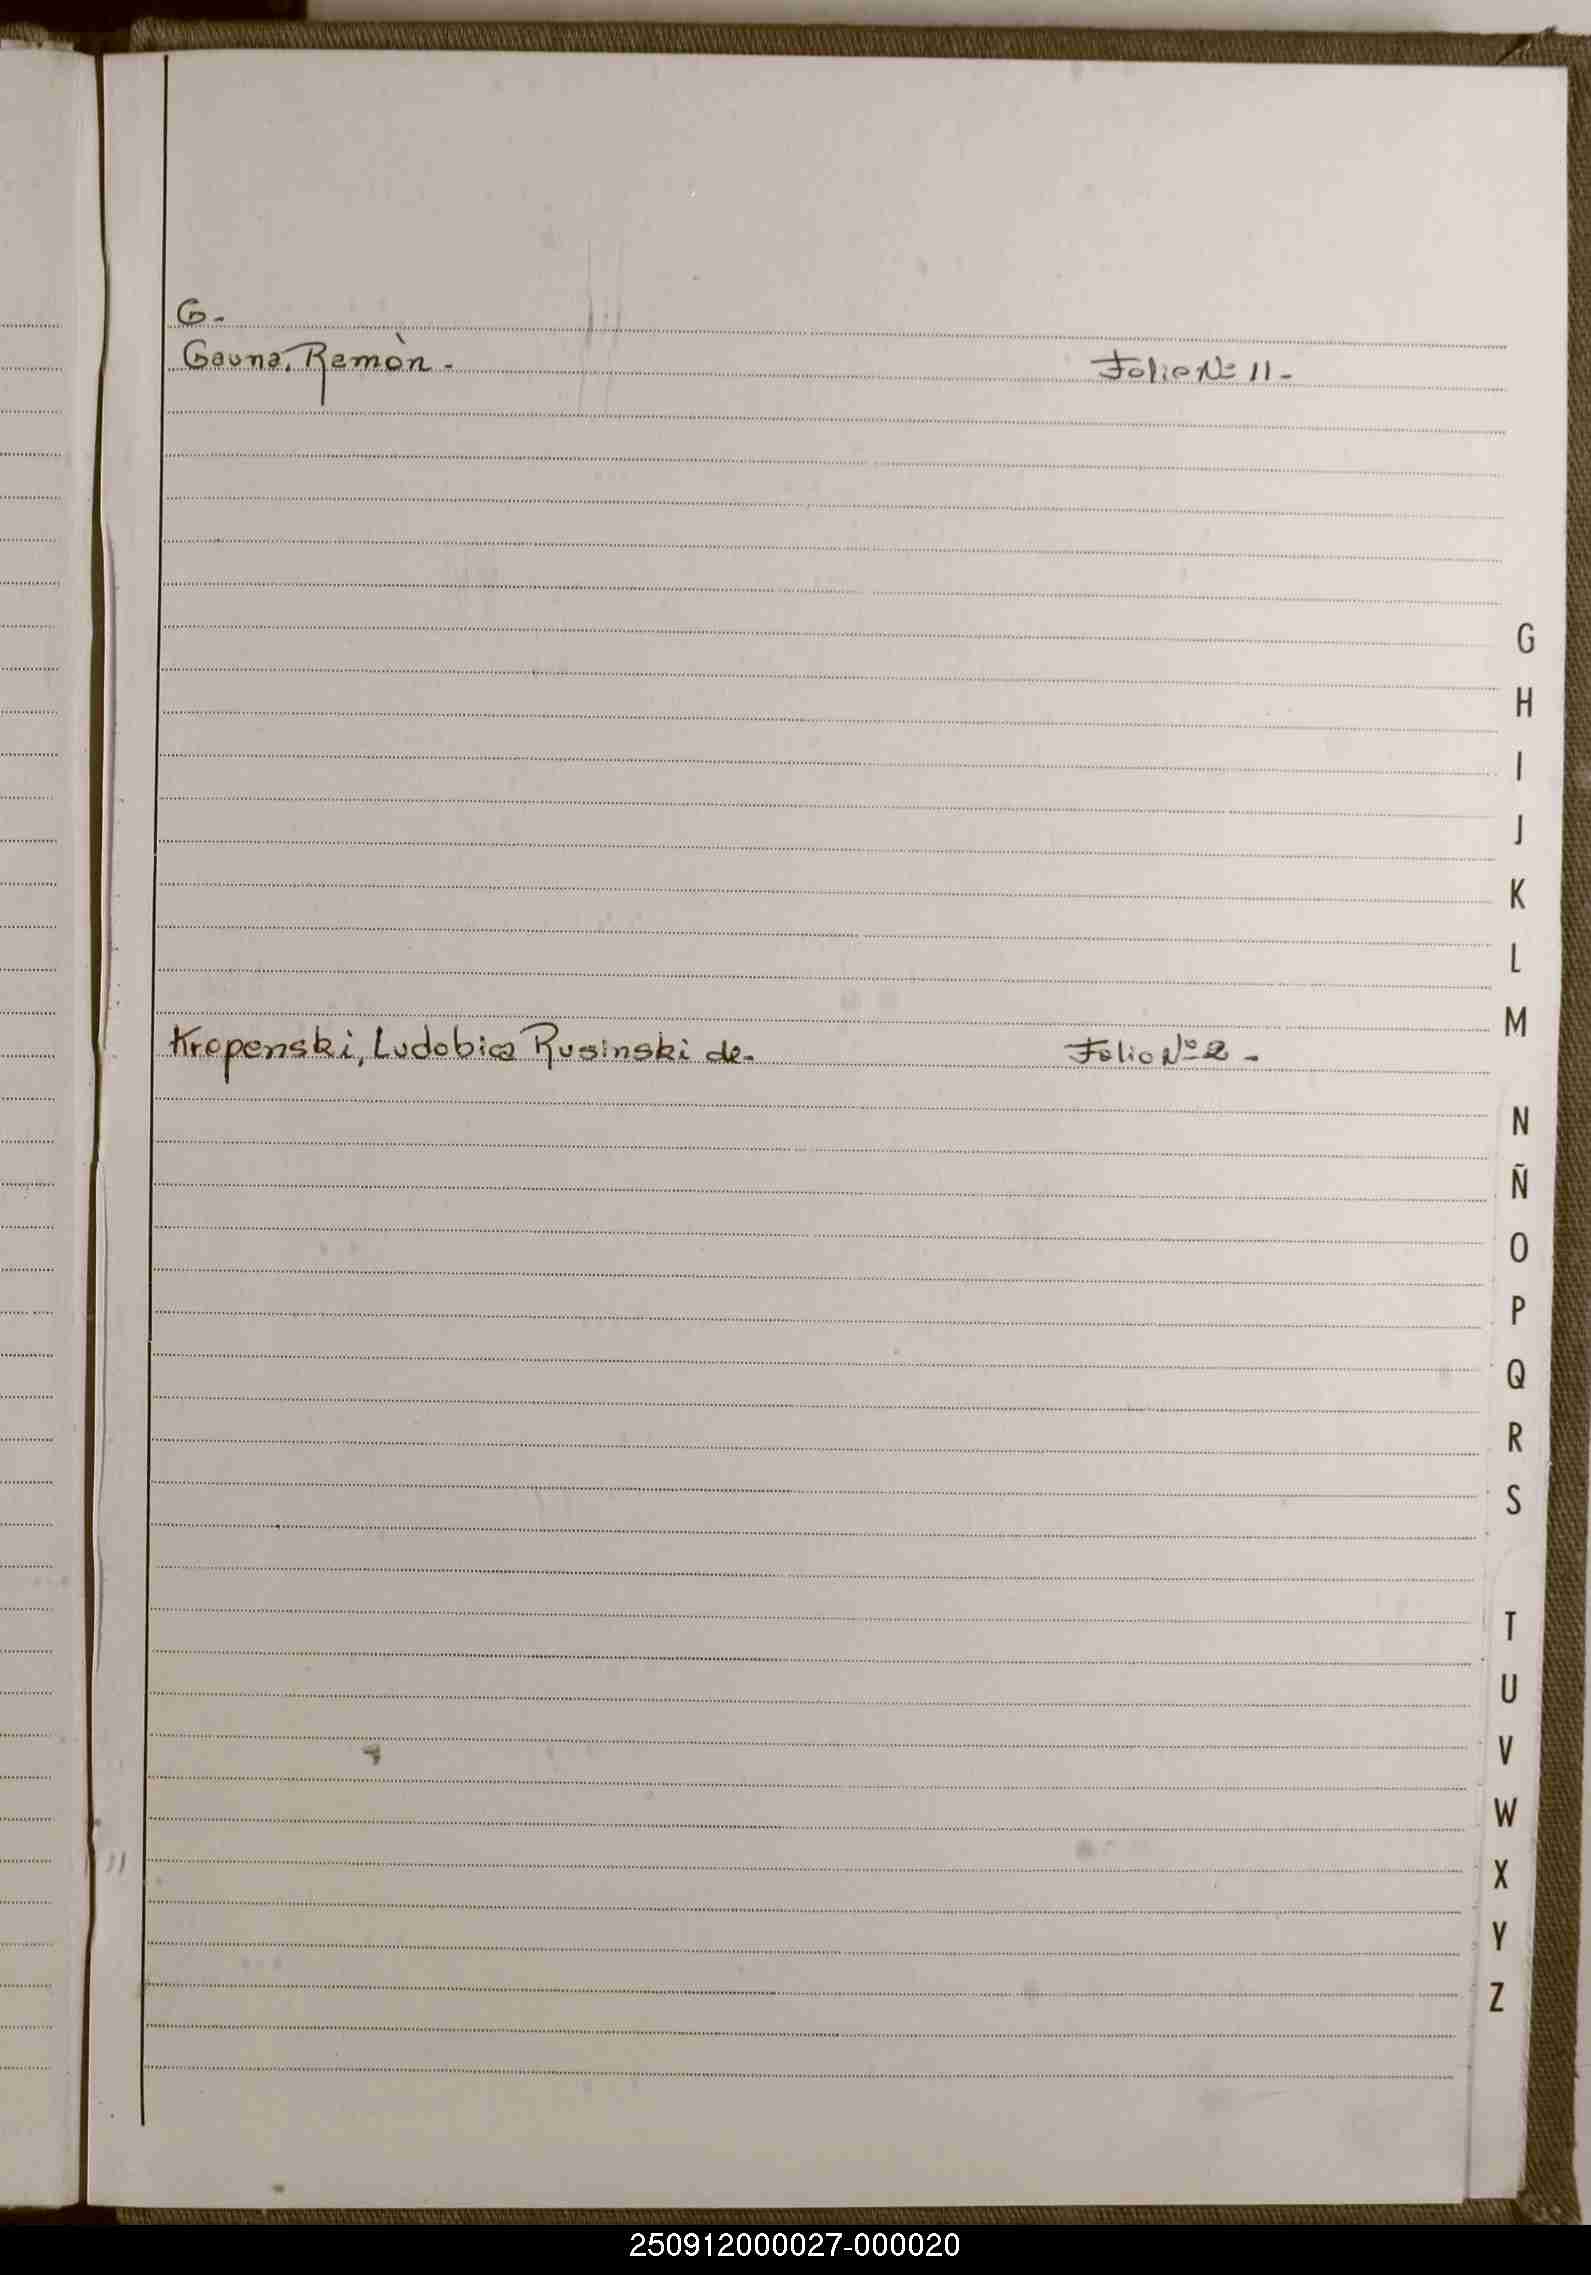 G.-
Gauna, Ramòn.-
Folio Nº 11.-
Kropenski, Ludobica Rusinski de.-
Folio Nº 2.-
G
H
I
J
K
L
M
N
Ñ
O
P
Q
R
S
T
U
V
W
X
Y
Z
250912000027-000020